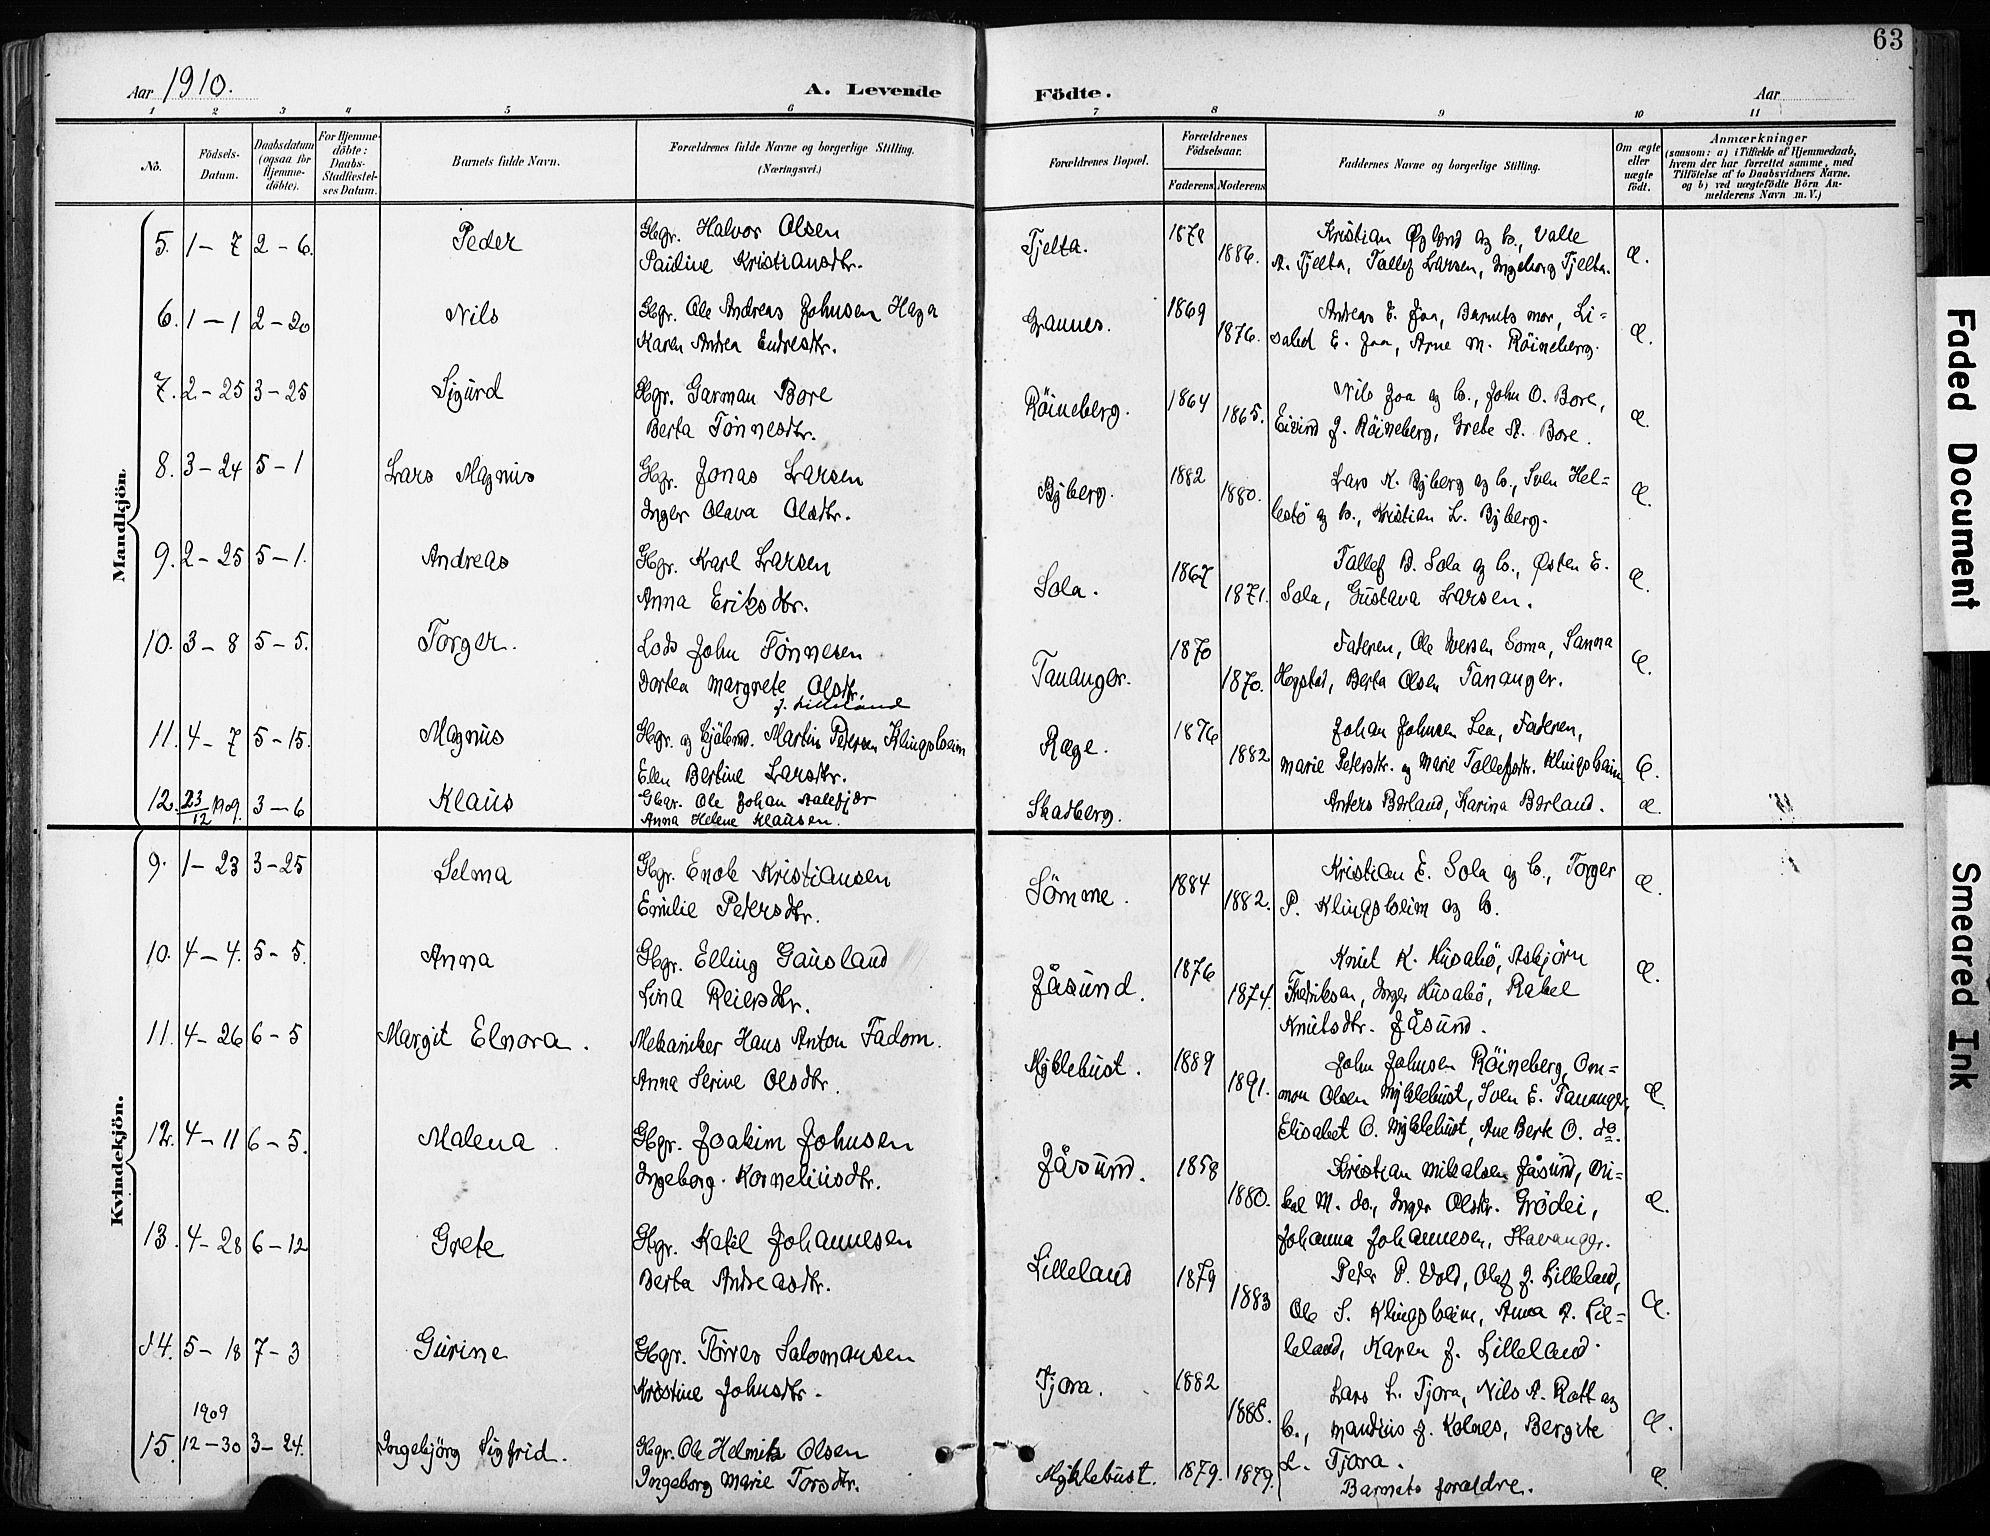 63
Aar 1910.
A. Levende Födte.
Aar
1 2 3 4 5 6 7 8 9 10 11
No.
Födsels-Datum.
Daabsdatum (ogsaa for Hjemme-döbte).
For Hjemme-döbte: Daabs-Stadfæstel-ses Datum.
Barnets fulde Navn.
Forældrenes fulde Navne og borgerlige Stilling. (Næringsvei.)
Forældrenes Bopæl.
Forældrenes Födselsaar.
Faderens. Moderens.
Faddernes Navne og borgerlige Stilling.
Om ægte eller uægte födt.
Anmærkninger
(saasom: a) i Tilfælde af Hjemmedaab, hvem der har forrettet samme, med Tilföielse af to Daabsvidners Navne. og b) ved uægtefödte Börn An-melderens Navn m. V.)
Mandkjön.
5. 1–7 2–6. Peder Gbgr. Halvor Olsen Tjelta. Kristian
Pauline Kristiansdtr. 1886. A. Tjelta, Tollef Larsen, Ingeborg Tjelta. Æ.
6. 1–1 2–20 Nils Gbgr. Ole Andreas Johnsen Haga Grannes. 1869 Andreas E. Joa, Barnets mor, Li=
Karen Andrea Endresdtr. 1876. sabed E. Joa, Arne M. Röineberg. Æ.
7. 2–25 3–25 Sigurd Gbgr. Garman Bore Röineberg. 1864 Nils Joa og h., John O. Bore,
Berta Tönnesdtr. 1865. Eivind J. Röineberg, Grete A. Bore. Æ.
8. 3–24 5–1 Lars Magnus Gbgr. Jonas Larsen Byberg. 1882 Lars K. Byberg og h., Sven Hel=
Inger Olava Olsdtr. 1880. lestö og h., Kristian L. Byberg. Æ.
9. 2–25 5–1. Andreas Gbgr. Karl Larsen Sola. 1867 Tollef B. Sola og h., Østen E.
Anna Eriksdtr. 1871. Sola, Gustava Larsen. Æ.
10. 3–8 5–5. Torger. Lods John Tönnesen Tananger. 1870 Faderen, Ole Iversen Soma, Sanna
Dortea Margrete Olsdtr. 1870. Hogstad, Berta Olsen Tananger. Æ.
f. Lilleland
11. 4–7 5–15. Magnus Gbgr. og Martin Petersen Klingsheim Ræge. 1876 Johan Johnsen Lea, Faderen,
Elen Bertine Larsdtr. 1882 Marie Petersdtr. og Marie Tollefsdtr. Klingsheim Æ.
12. 23/12 1909. 3–6 Klaus Gbgr. Ole Johan Malefjær Skadberg. Anders Borland, Karina Borland. Æ.
Anna Helene Klausen.
Kvindekjön.
9. 1–23 3–25 Selma Gbgr. Enok Kristiansen Sömme. 1884 Kristian E. Sola og h., Torger
Emilie Petersdtr. 1882. P. Klingsheim og h. Æ.
10. 4–4. 5–5. Anna Gbgr. Elling Gausland Jåsund. 1876 Knut K. Husabö, Asbjörn
Lina Reiersdtr. 1874. Fredriksen, Inger Husabö, Rakel Æ.
Knutsdtr. Jåsund.
11. 4–26 6–5 Margit Elnora. Mekaniker Hans Anton Fadom. Myklebust. 1889 John Johnsen Röineberg, Om=
Anna Serine Olsdtr. 1891. mon Olsen Myklebust, Sven E. Tananger, Æ.
Elisabet O. Myklebust, Ane Berte O. do.
12. 4–11 6–5. Malena Gbgr. Joakim Johnsen Jåsund. 1858 Kristian Mikalsen Jåsund, Mi=
Ingeborg Korneliusdtr. 1880. kal M. do., Inger Olsdtr. Grödei, Æ.
Johanna Johannesen, Stavanger.
13. 4–28 6–12 Grete Gbgr. Ketil Johannesen Lilleland 1879 Peter P. Vold, Olaf J. Lilleland,
Berta Andreasdtr. 1883 Ole S. Klingsheim, Anna A. Lil=
leland, Karen J. Lilleland. Æ.
14. 5–18 7–3 Gurine Gbgr. Törres Salomonsen Tjora. 1882 Lars L. Tjora, Nils A. Rott og
Kristine Johnsdtr. 1885. h., Mandius J. Kolnes, Bergite Æ.
L. Tjora.
1909
15. 12–30 3–24. Ingebjörg Sigfrid. Gbgr. Ole Helmik Olsen Myklebust. 1879. 1879. Barnets forældre. Æ.
Ingeborg Marie Torsdtr.
Faded Document
Smeared Ink